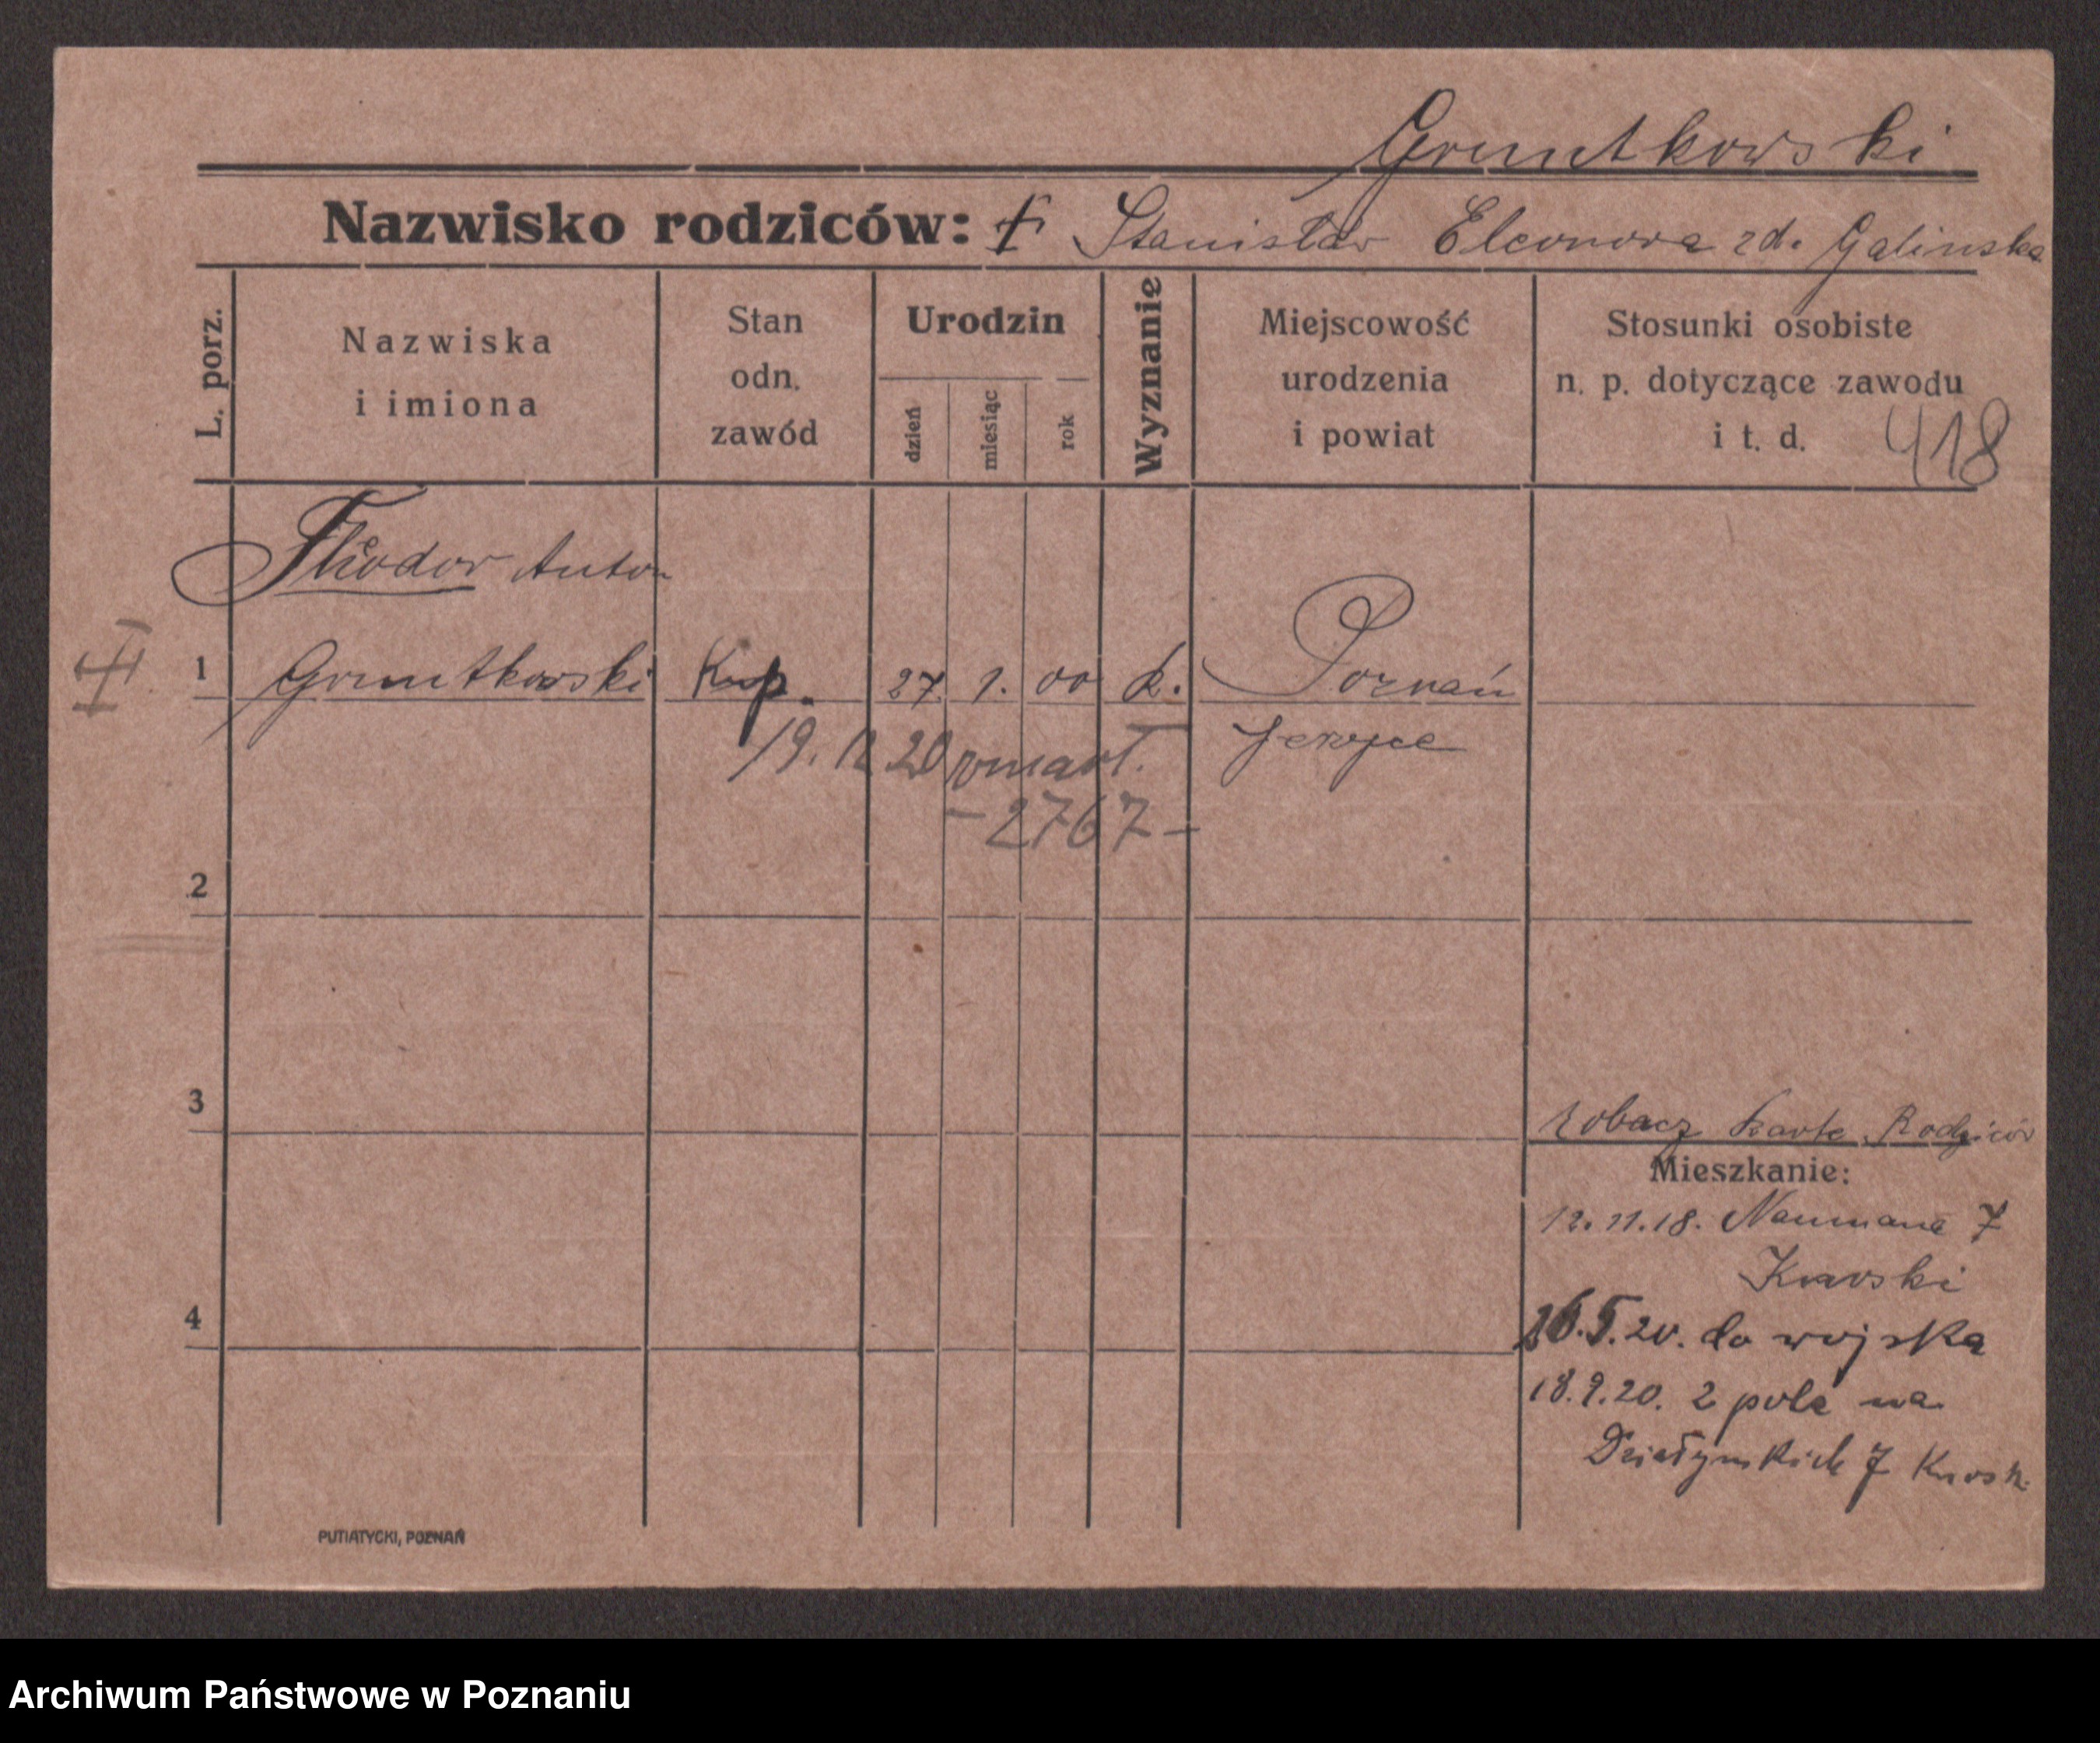 Gruntkowski
Nazwisko rodziców: † Stanisław Eleonora zd. Galinska
L. porz.
Nazwiska
i imiona
Stan
odn.
zawód
Urodzin
dzień
miesiąc
rok
Wyznanie
Miejscowość
urodzenia
i powiat
Stosunki osobiste
n. p. dotyczące zawodu
i t. d.
418
Theodor Anton
1 Gruntkowski Kup. 27. 1. 00 k. Poznań
19. 12 20 zmarł.
-2767-
2
3
Zobacz karte Rodziców
Mieszkanie:
12.11.18. Naumana 7
4
16.5.20. do wojska
18.9.20. z pola na
Działyńskich 7
PUTIATYCKI, POZNAŃ
Archiwum Państwowe w Poznaniu